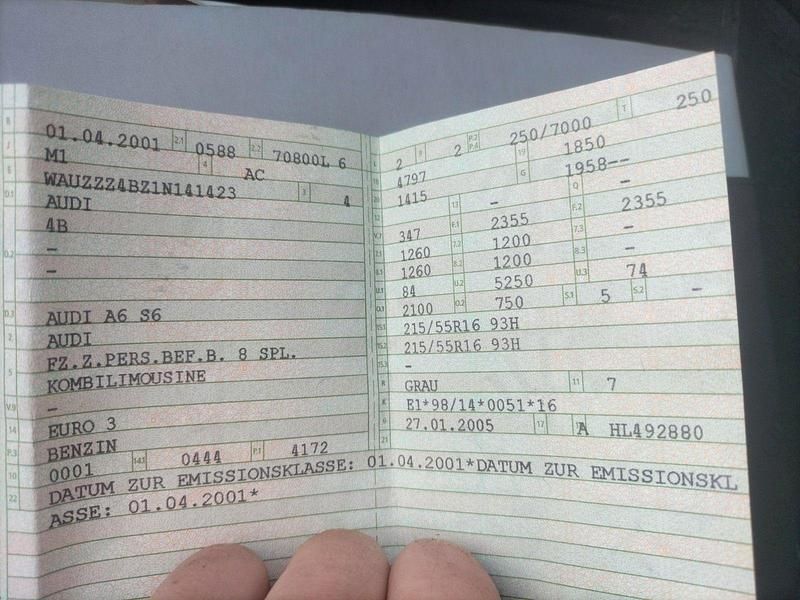 B 01.04.2001 2.1 0588 2.2 70800L 6
J M1 4 AC
E WAUZZZ4BZ1N141423 3 4
D.1 AUDI
4B
D.2 –
–
D.3 AUDI A6 S6
2 AUDI
5 FZ.Z.PERS.BEF.B. 8 SPL.
KOMBILIMOUSINE
V.9 –
14 EURO 3
P.3 BENZIN
10 0001 14.1 0444 P.1 4172
22 DATUM ZUR EMISSIONSKLASSE: 01.04.2001*DATUM ZUR EMISSIONSKL
ASSE: 01.04.2001*
L 2 9 2 P.2 P.4 250/7000 T 250
18 4797 19 1850
20 1415 G 1958--
12 – 13 – Q –
V.7 347 F.1 2355 F.2 2355
7.1 1260 7.2 1200 7.3 –
8.1 1260 8.2 1200 8.3 –
U.1 84 U.2 5250 U.3 74
O.1 2100 O.2 750 S.1 5 S.2 –
15.1 215/55R16 93H
15.2 215/55R16 93H
15.3 –
R GRAU 11 7
K E1*98/14*0051*16
6 27.01.2005 17 A HL492880
21